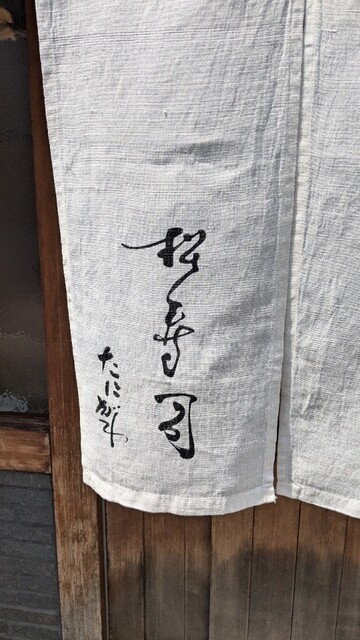 松寿司
たにがわ